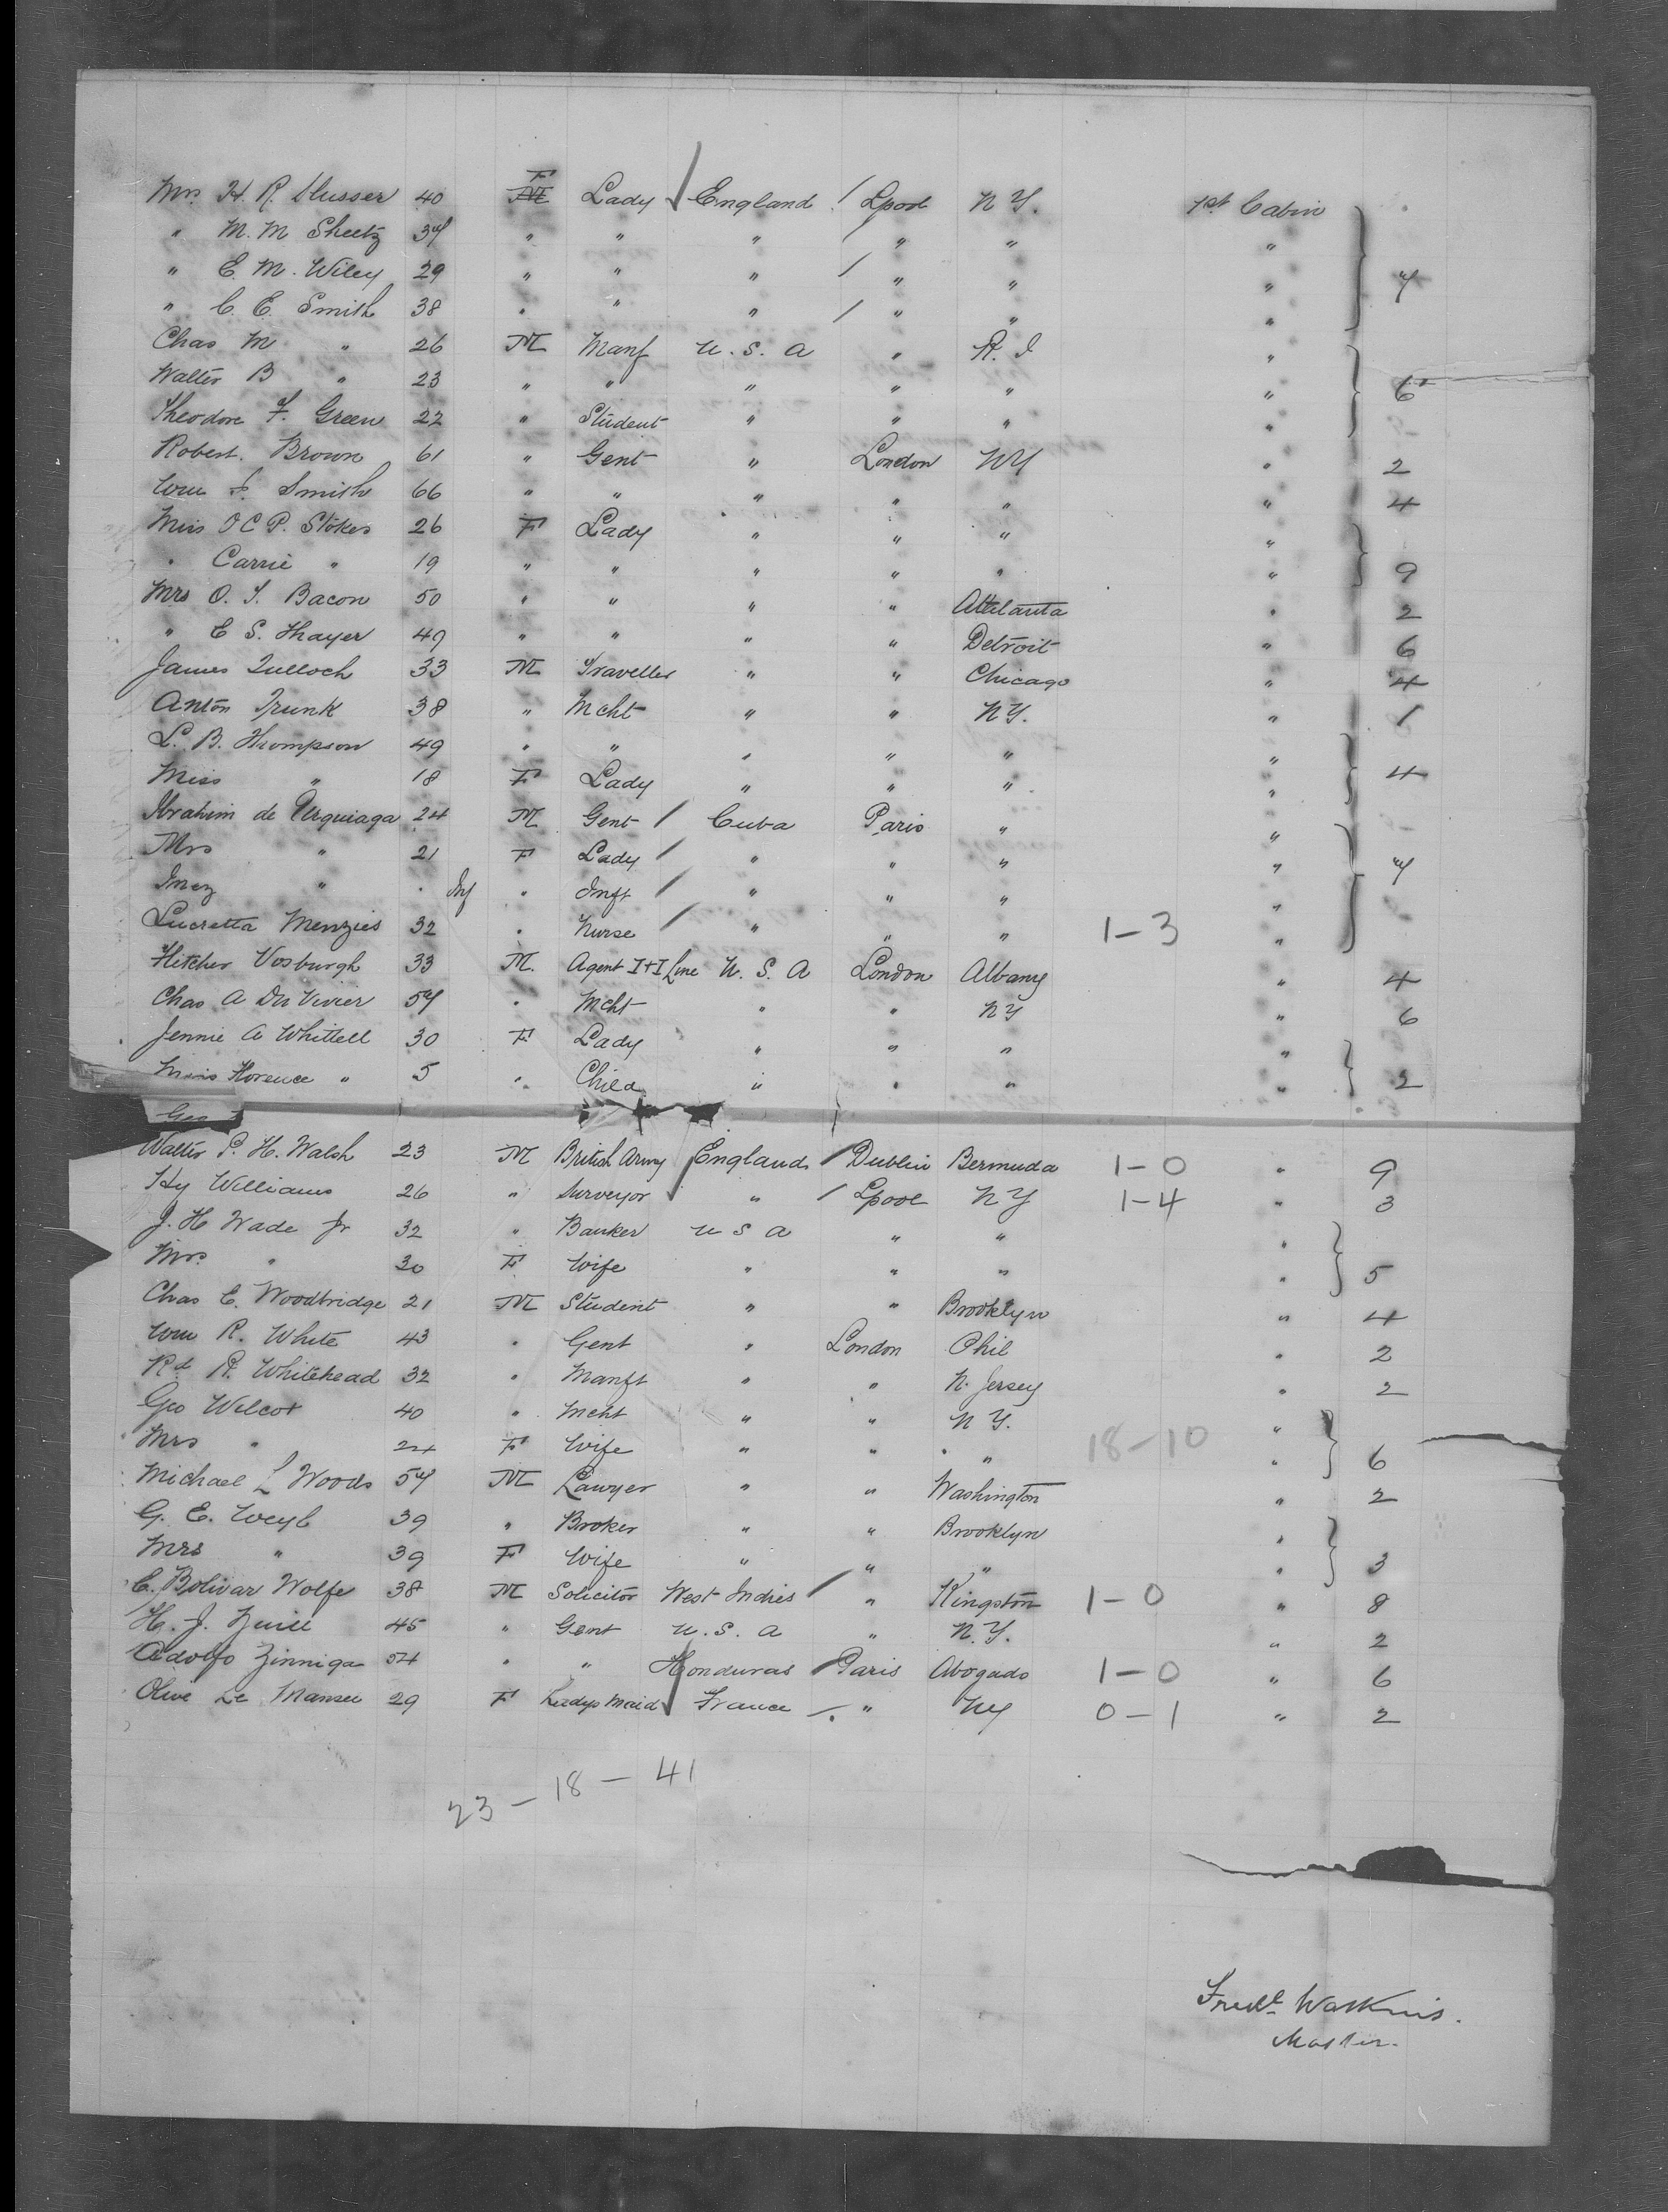 Mrs. H. R. Slusser 40 F Lady England Lpool N Y. 1st Cabin
" M. M Sheetz 37 " " " " " "
" E. M. Wiley 29 " " " " " " 7
" C. E. Smith 38 " " " " " "
Chas M " 26 M Manf U. S. A " R. I "
Walter B " 23 " " " " " " 6
Theodore F. Green 22 " Student " " " "
Robert. Brown 61 " Gent " London NY " 2
Wm S. Smith 66 " " " " " " 4
Miss O C P. Stokes 26 F Lady " " " "
" Carrie " 19 " " " " " " 9
Mrs O. S. Bacon 50 " " " " Attlanta " 2
" E S. Thayer 49 " " " " Detroit " 6
James Tulloch 33 M Traveller " " Chicago " 4
Anton Trunk 38 " Mcht " " NY. " 1
L. B. Thompson 49 " " " " " "
Miss " 18 F Lady " " " " 4
Abrahim de Urquiaga 24 M Gent Cuba Paris " "
Mrs " 21 F Lady " " " " 7
Inez " Inf " Inft " " " "
Lucretta Menzies 32 " Nurse " " " 1-3 "
Fletcher Vosburgh 33 M. Agent I+I Line U. S. A London Albany " 4
Chas A Du Vivier 57 " Mcht " " NY " 6
Jennie A Whittell 30 F Lady " " " "
Miss Florence " 5 " Child " " " " 2
Geo
Walter P. H. Walsh 23 M British Army England Dublin Bermuda 1-0 " 9
Hy Williams 26 " Surveyor " Lpool N Y 1-4 " 3
J. H Wade Jr 32 " Banker U S A " " "
Mrs. " 30 F Wife " " " " 5
Chas E. Woodbridge 21 M Student " " Brooklyn " 4
Wm R. White 43 " Gent " London Phil " 2
Rd R. Whitehead 32 " Manft " " N. Jersey " 2
Geo Wilcox 40 " Mcht " " N Y. "
Mrs " 24 F Wife " " " 18-10 " 6
Michael L Woods 57 M Lawyer " " Washington " 2
G. E. Weyl 39 " Broker " " Brooklyn "
Mrs " 39 F Wife " " " " 3
C. Bolivar Wolfe 38 M Solicitor West Indies " Kingston 1-0 " 8
H. J. 45 " Gent U. S. A " N. Y. " 2
Adolfo Zinniga 54 " " Honduras Paris Abogado 1-0 " 6
Olive Le 29 F Ladys Maid France " NY 0-1 " 2
23 - 18 - 41
Fredk Watkins.
Master.